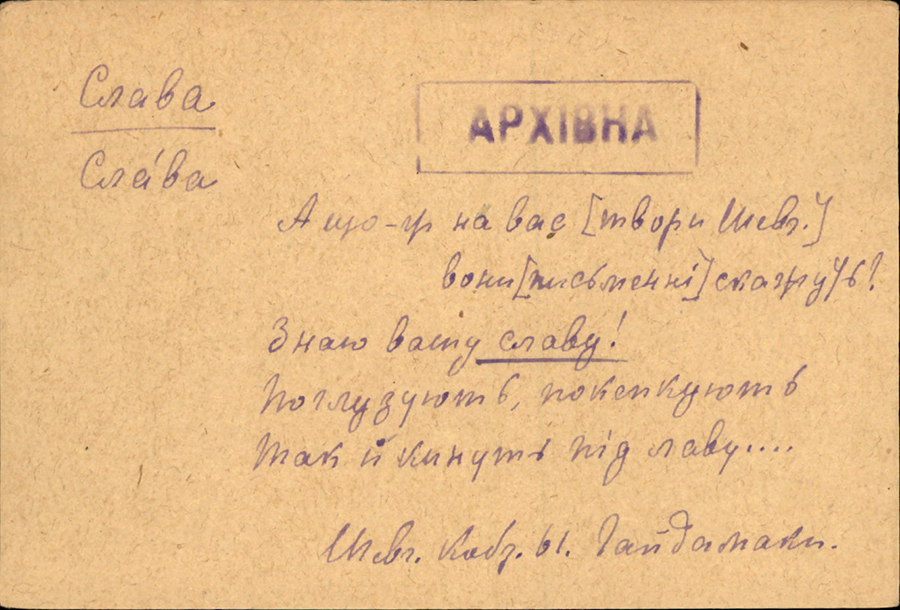 Слава
АРХІВНА
Сла́ва
А що-ж на вас [твори Шевч.]
вони [письменні] скажуть?
Знаю вашу славу!
Поглузують, покепкують
Так й кинуть під лаву....
Шевч. Кобз. 61. Гайдамаки.